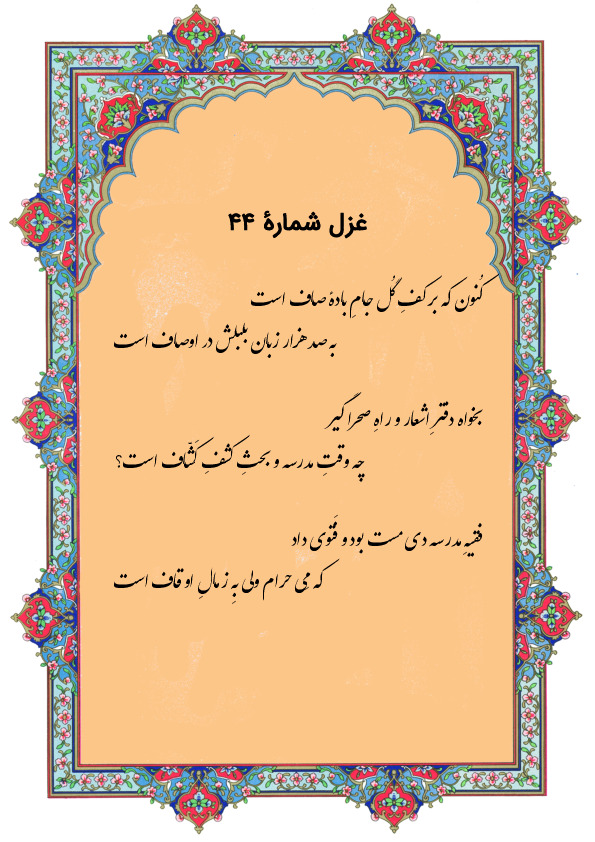 غزل شمارهٔ ۴۴
کُنون که بر کفِ گُل جامِ بادهٔ صاف است
به صد هزار زبان بلبلش در اوصاف است
بخواه دفترِ اشعار و راهِ صحرا گیر
چه وقتِ مدرسه و بحثِ کشفِ کَشّاف است؟
فقیهِ مدرسه دی مست بود و فَتوی داد
که مِی حرام ولی بِه ز مالِ اوقاف است